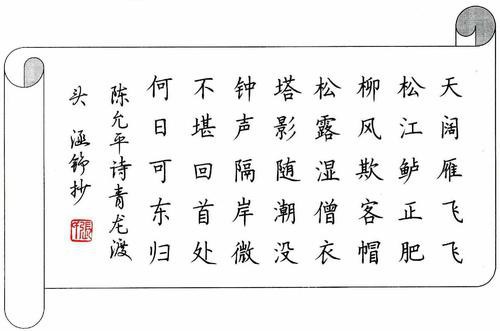 天阔雁飞飞
松江鲈正肥
柳风欺客帽
松露湿僧衣
塔影随潮没
钟声隔岸微
不堪回首处
何日可东归
陈允平诗青龙渡
头 涵舒抄